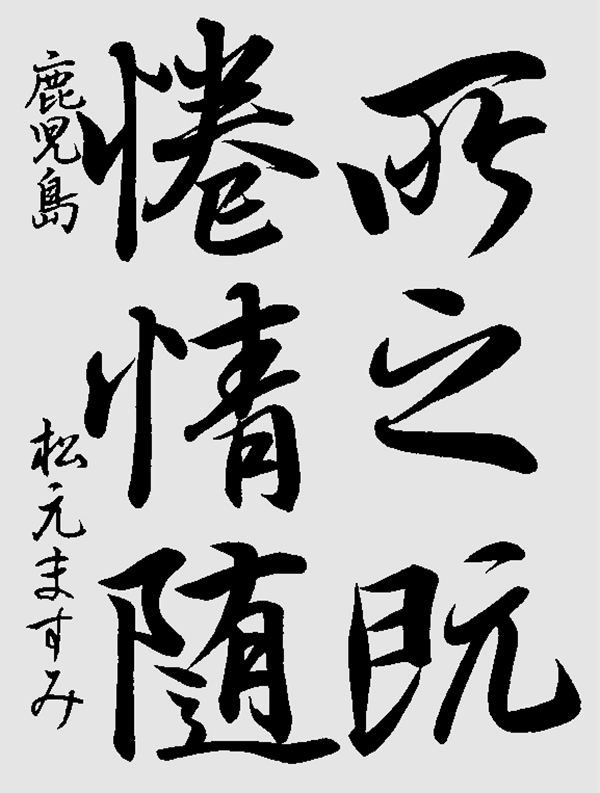 所之既
惓情随
鹿児島 松元ますみ